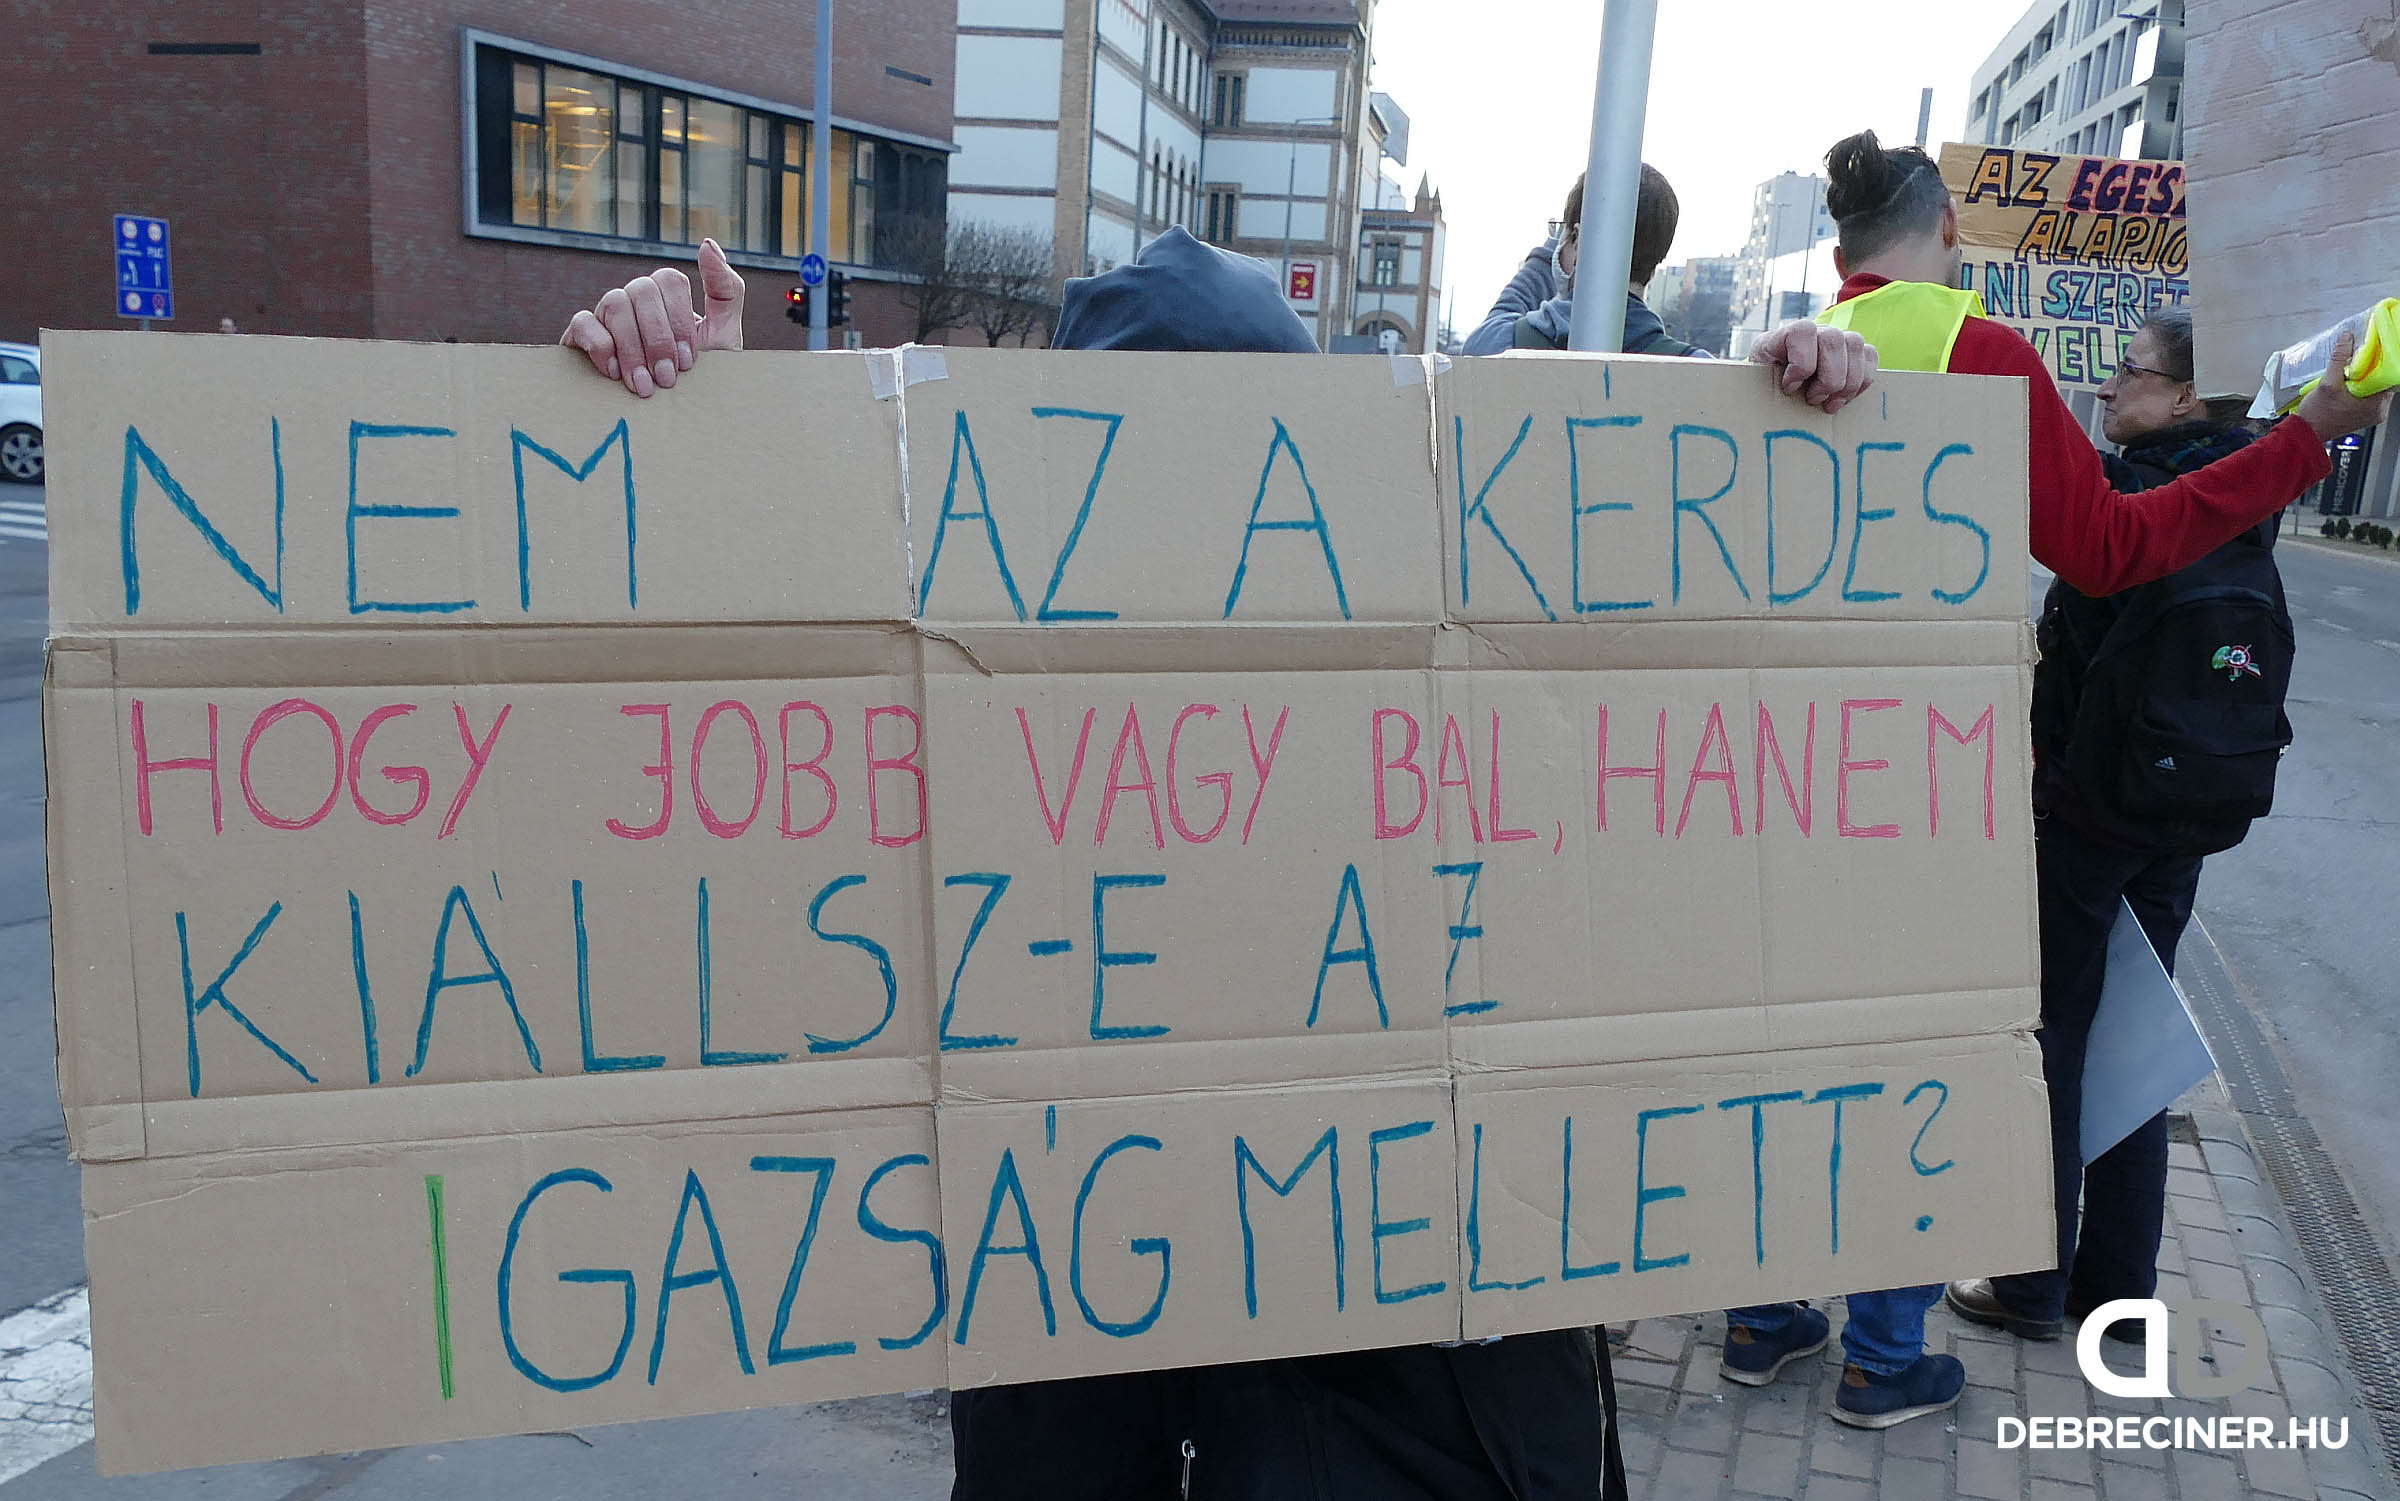 NEM AZ A KÉRDÉS
HOGY JOBB VAGY BAL, HANEM
KIÁLLSZ-E AZ
IGAZSÁG MELLETT?
AZ
ALAPJO
SZERET
DEBRECINER.HU